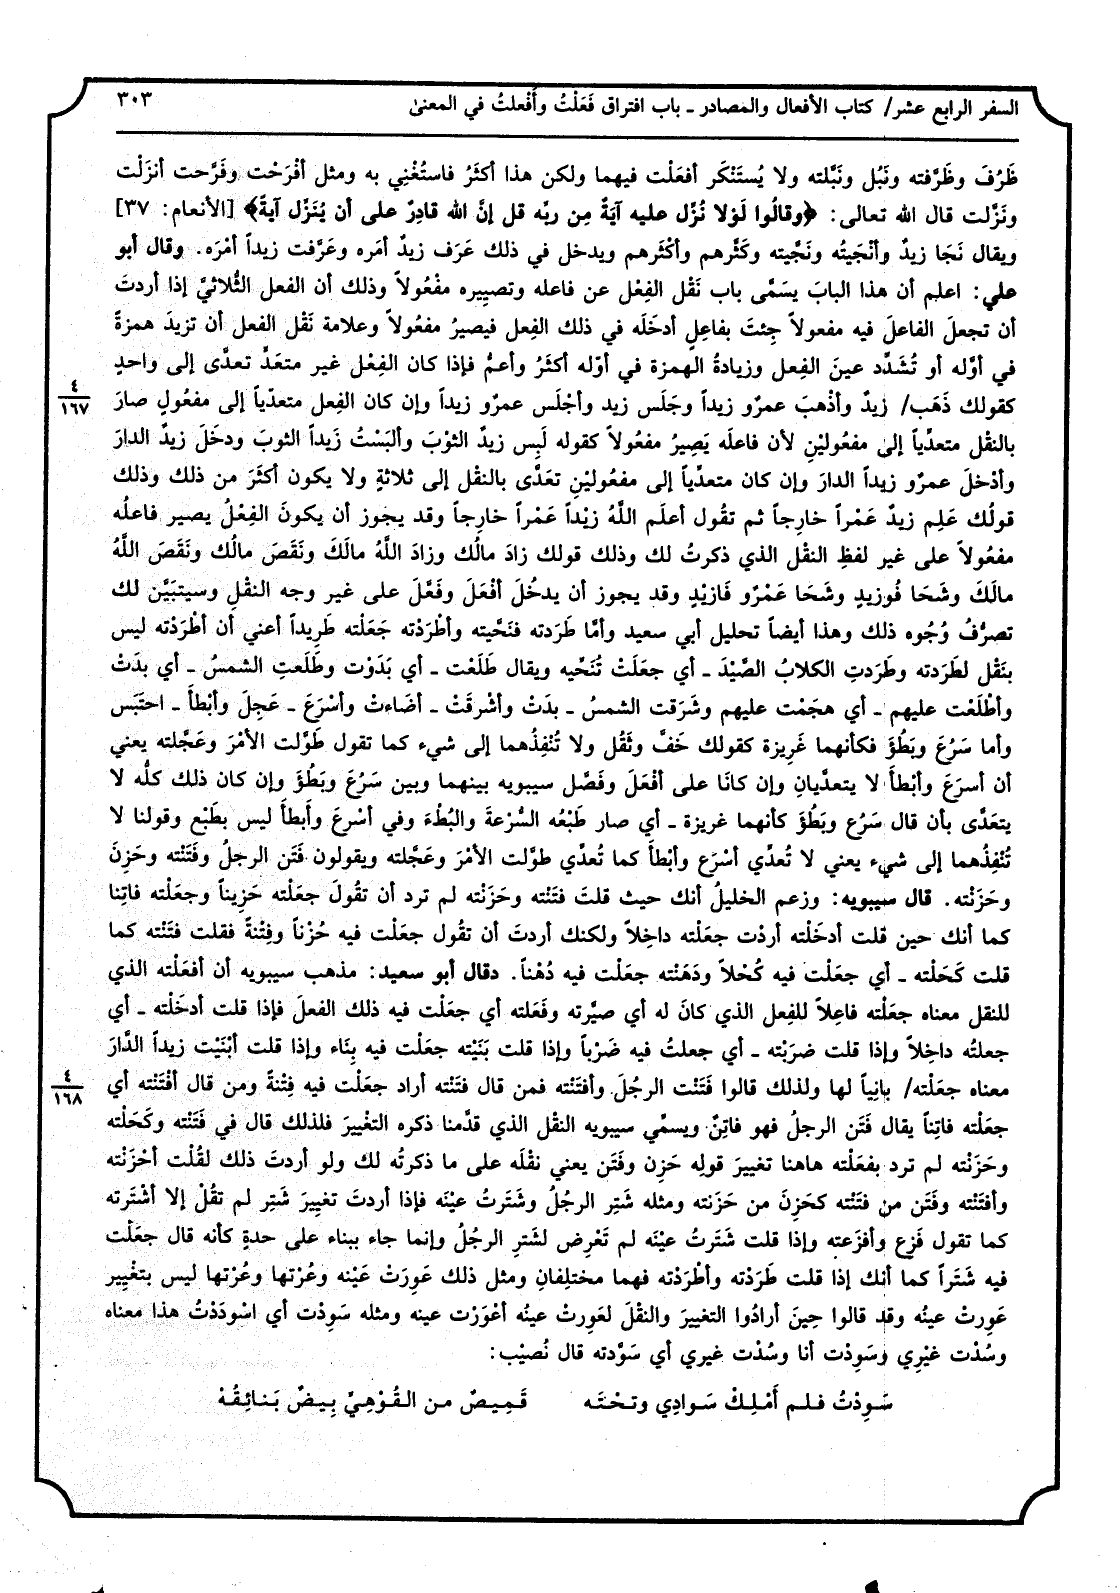 السفر الرابع عشر/ كتاب الأفعال والمصادر ـ باب افتراق فَعَلْتُ وأَفْعلتُ في المعنىٰ
٣٠٣
ظَرُفَ وظَرَّفته ونَبُل ونَبَّلته ولا يُستَنْكَر أفعَلْت فيهما ولكن هذا أكثَرُ فاستُغْنِي به ومثل أفْرَحْت وفَرَّحت أنزَلْت
ونَزَّلت قال الله تعالى: ﴿وقالُوا لَوْلا نُزِّل عليه آيَةٌ مِن ربِّه قل إنَّ الله قادِرٌ على أن يُنَزِّل آيةً﴾ [الأنعام: ٣٧]
ويقال نَجَا زيدٌ وأنْجَيتُه ونَجَّيته وكَثَّرهم وأكْثَرهم ويدخل في ذلك عَرَف زيدٌ أمَره وعَرَّفت زيداً أمْرَه. وقال أبو
علي: اعلم أن هذا البابَ يسَمَّى باب نَقْل الفِعْل عن فاعله وتصيِيره مفْعُولاً وذلك أن الفعل الثُّلاثيَّ إذا أردتَ
أن تجعلَ الفاعلَ فيه مفعولاً جِئتَ بفاعِلٍ أدخَلَه في ذلك الفِعل فيصيرُ مفعُولاً وعلامة نَقْل الفعل أن تزيدَ همزةً
في أوَّله أو تُشَدِّد عينَ الفِعل وزيادةُ الهمزة في أوّله أكثَرُ وأعمُّ فإذا كان الفِعْل غير متعَدٍّ تعدَّى إلى واحدٍ
كقولك ذَهَب/ زيدٌ وأذْهبَ عمرٌو زيداً وجَلَس زيد وأجْلَس عمرٌو زيداً وإن كان الفِعل متعدّياً إلى مفعُولٍ صارَ
٤
١٦٧
بالنقْل متعدِّياً إلى مفعُوليْنِ لأن فاعلَه يَصِيرُ مفعُولاً كقوله لَبِس زيدٌ الثوْبَ وألبَسْتُ زَيداً الثوبَ ودخَلَ زيدٌ الدارَ
وأدْخلَ عمرٌو زيداً الدارَ وإن كان متعدِّياً إلى مفعُوليْنِ تعَدَّى بالنقْل إلى ثلاثةٍ ولا يكون أكثَرَ من ذلك وذلك
قولُك عَلِم زيدٌ عَمْراً خارِجاً ثم تقُول أعلَم اللَّهُ زيْداً عَمْراً خارِجاً وقد يجوز أن يكونَ الفِعْلُ يصير فاعلُه
مفعُولاً على غير لفظِ النقْل الذي ذكرتُ لك وذلك قولك زادَ مالُك وزادَ اللَّهُ مالَكَ ونَقَصَ مالُك ونَقَصَ اللَّهُ
مالَكَ وشَحَا فُوزيدٍ وشَحَا عَمْرٌو فَازيْدٍ وقد يجوز أن يدخُلَ أفْعَلَ وفَعَّلَ على غير وجه النقْلِ وسيتبَيَّن لك
تصرُّفُ وُجُوه ذلك وهذا أيضاً تحليل أبي سعيد وأمَّا طَرَدته فنَحَّيته وأطْرَدْته جَعَلْته طَرِيداً أعني أن أطْرَدْته ليس
بنَقْل لطَرَدته وطَرَدتِ الكلابُ الصَّيْدَ ـ أي جعَلَتْ تُنَحِّيه ويقال طَلَعْت ـ أي بَدَوْت وطَلَعتِ الشمسُ ـ أي بدَتْ
وأطْلَعْت عليهم ـ أي هجَمْت عليهم وشَرَقت الشمسُ ـ بدَتْ وأشْرقَتْ ـ أضَاءتْ وأسْرَعَ ـ عَجِلَ وأبْطأَ ـ احتَبَس
وأما سَرُعَ وبَطُؤَ فكأنهما غَرِيزة كقولك خَفَّ وثَقُل ولا تُنْفِذُهما إلى شيء كما تقول طَوَّلت الأمْرَ وعَجَّلته يعني
أن أسرَعَ وأبْطأَ لا يتعدَّيانِ وإن كانَا على أفْعَلَ وفَصَّل سيبويه بينهما وبين سَرُعَ وبَطُؤَ وإن كان ذلك كلُّه لا
يتعَدَّى بأن قال سَرُع وبَطُؤَ كأنهما غريزة ـ أي صار طَبْعُه السُّرْعةَ والبُطْءَ وفي أسْرعَ وأَبطأَ ليس بطَبْعٍ وقولنا لا
تُنْفِذُهما إلى شيء يعني لا تُعدِّي أسْرَع وأبْطأَ كما تُعدِّي طوَّلت الأمْرَ وعَجَّلته ويقولون فَتَن الرجلُ وفَتَنْته وحَزِنَ
وحَزَنْته. قال سيبويه: وزعم الخليلُ أنك حيث قلتَ فتَنْته وحَزَنْته لم ترد أن تقُولَ جعَلْته حَزِيناً وجعَلْته فاتِنا
كما أنك حين قلت أدخَلْته أرَدْت جعَلْته داخِلاً ولكنك أردتَ أن تقُول جعَلْت فيه حُزْناً وفِتْنةً فقلت فتَنْته كما
قلت كَحَلْته ـ أي جعَلْت فيه كُحْلاً ودَهَنْته جعَلْت فيه دُهْناً. دقال أبو سعيد: مذهب سيبويه أن أفعَلْته الذي
للنقل معناه جعَلْته فاعِلاً للفِعل الذي كانَ له أي صيَّرته وفَعَلته أي جعَلْت فيه ذلك الفعلَ فإذا قلت أدخَلْته ـ أي
جعلتُه داخِلاً وإذا قلت ضرَبْته ـ أي جعلتُ فيه ضَرْباً وإذا قلت بَنَيْته جعَلْت فيه بِنَاء وإذا قلت أبْنَيْت زيداً الدَّارَ
معناه جعَلْته/ بانِياً لها ولذلك قالوا فَتَنْت الرجُلَ وأفتَنْته فمن قال فتَنْته أراد جعَلْت فيه فِتْنةً ومن قال أفْتَنْته أي
٤
١٦٨
جعَلْته فاتِناً يقال فَتَن الرجلُ فهو فاتِنٌ ويسمِّي سيبويه النقْل الذي قدَّمنا ذكره التغْييرَ فلذلك قال في فَتَنْته وكَحَلْته
وحَزَنْته لم ترد بفَعَلْته هاهنا تغييرَ قولِه حَزِن وفَتَن يعني نقْلَه على ما ذكرتُه لك ولو أردتَ ذلك لقُلْت أحْزَنْته
وأفتَنْته وفَتَن من فتَنْته كحَزِنَ من حَزَنته ومثله شَتِر الرجُلُ وشَتَرتُ عيْنَه فإذا أردتَ تغيِيرَ شَتِر لم تقُلْ إلا أشْتَرته
كما تقول فَزِع وأفزَعته وإذا قلت شَتَرتُ عيْنَه لم تَعْرِض لشَتِرِ الرجُلُ وإنما جاء ببناء على حدةٍ كأنه قال جعَلْت
فيه شَتَراً كما أنك إذا قلت طَرَدْته وأطْرَدْته فهما مختلِفانِ ومثل ذلك عَوِرَتْ عَيْنه وعُرْتها وعُرْتها ليس بتغْيِير
عَوِرتْ عينُه وقد قالوا حِينَ أرادُوا التغييرَ والنقْلَ لعَوِرتْ عينُه أعْوَرْت عينه ومثله سَوِدْت أي اسْودَدْتُ هذا معناه
وسُدْت غيْرِي وسَوِدْت أنا وسُدْت غيري أي سَوَّدته قال نُصيْب:
سَوِدْتُ فلم أَمْلِكْ سَوادِي وتحْتَه قَمِيصٌ من القُوْهِيِّ بِيضٌ بَنائِقُهْ